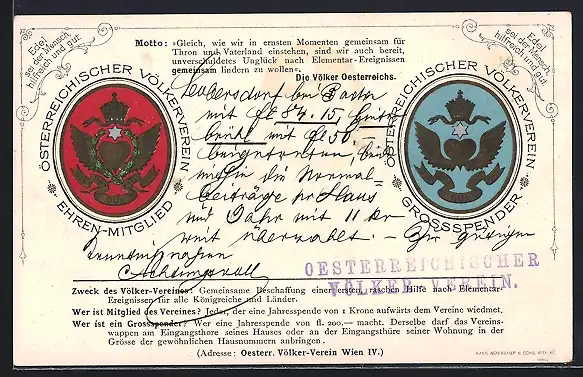 Edel
sei der Mensch
hilfreich und gut
Motto: »Gleich, wie wir in ernsten Momenten gemeinsam für
Thron und Vaterland einstehen, sind wir auch bereit,
unverschuldetes Unglück nach Elementar-Ereignissen
gemeinsam lindern zu wollen«.
Die Völker Oesterreichs.
Edel
sei der Mensch
hilfreich und gut
ÖSTERREICHISCHER VÖLKERVEREIN
EHREN-MITGLIED
ÖSTERREICHISCHER VÖLKERVEREIN
GROSSSPENDER
bei
mit fl 84.15,
mit fl 50
die Normal-
beiträge pr Haus
und Jahr mit 11 kr
weit überzahlt. – Zur gütigen
Kenntnisnahme
Achtungsvoll
OESTERREICHISCHER
VÖLKER-VEREIN.
Zweck des Völker-Vereines: Gemeinsame Beschaffung einer ersten, raschen Hilfe nach Elementar-
Ereignissen für alle Königreiche und Länder.
Wer ist Mitglied des Vereines? Jeder, der eine Jahresspende von 1 Krone aufwärts dem Vereine wiedmet.
Wer ist ein Grosspender? Wer eine Jahresspende von fl. 200.— macht. Derselbe darf das Vereins-
wappen am Eingangsthore seines Hauses oder an der Eingangsthüre seiner Wohnung in der
Grösse der gewöhnlichen Hausnummern anbringen.
(Adresse: Oesterr. Völker-Verein Wien IV.)